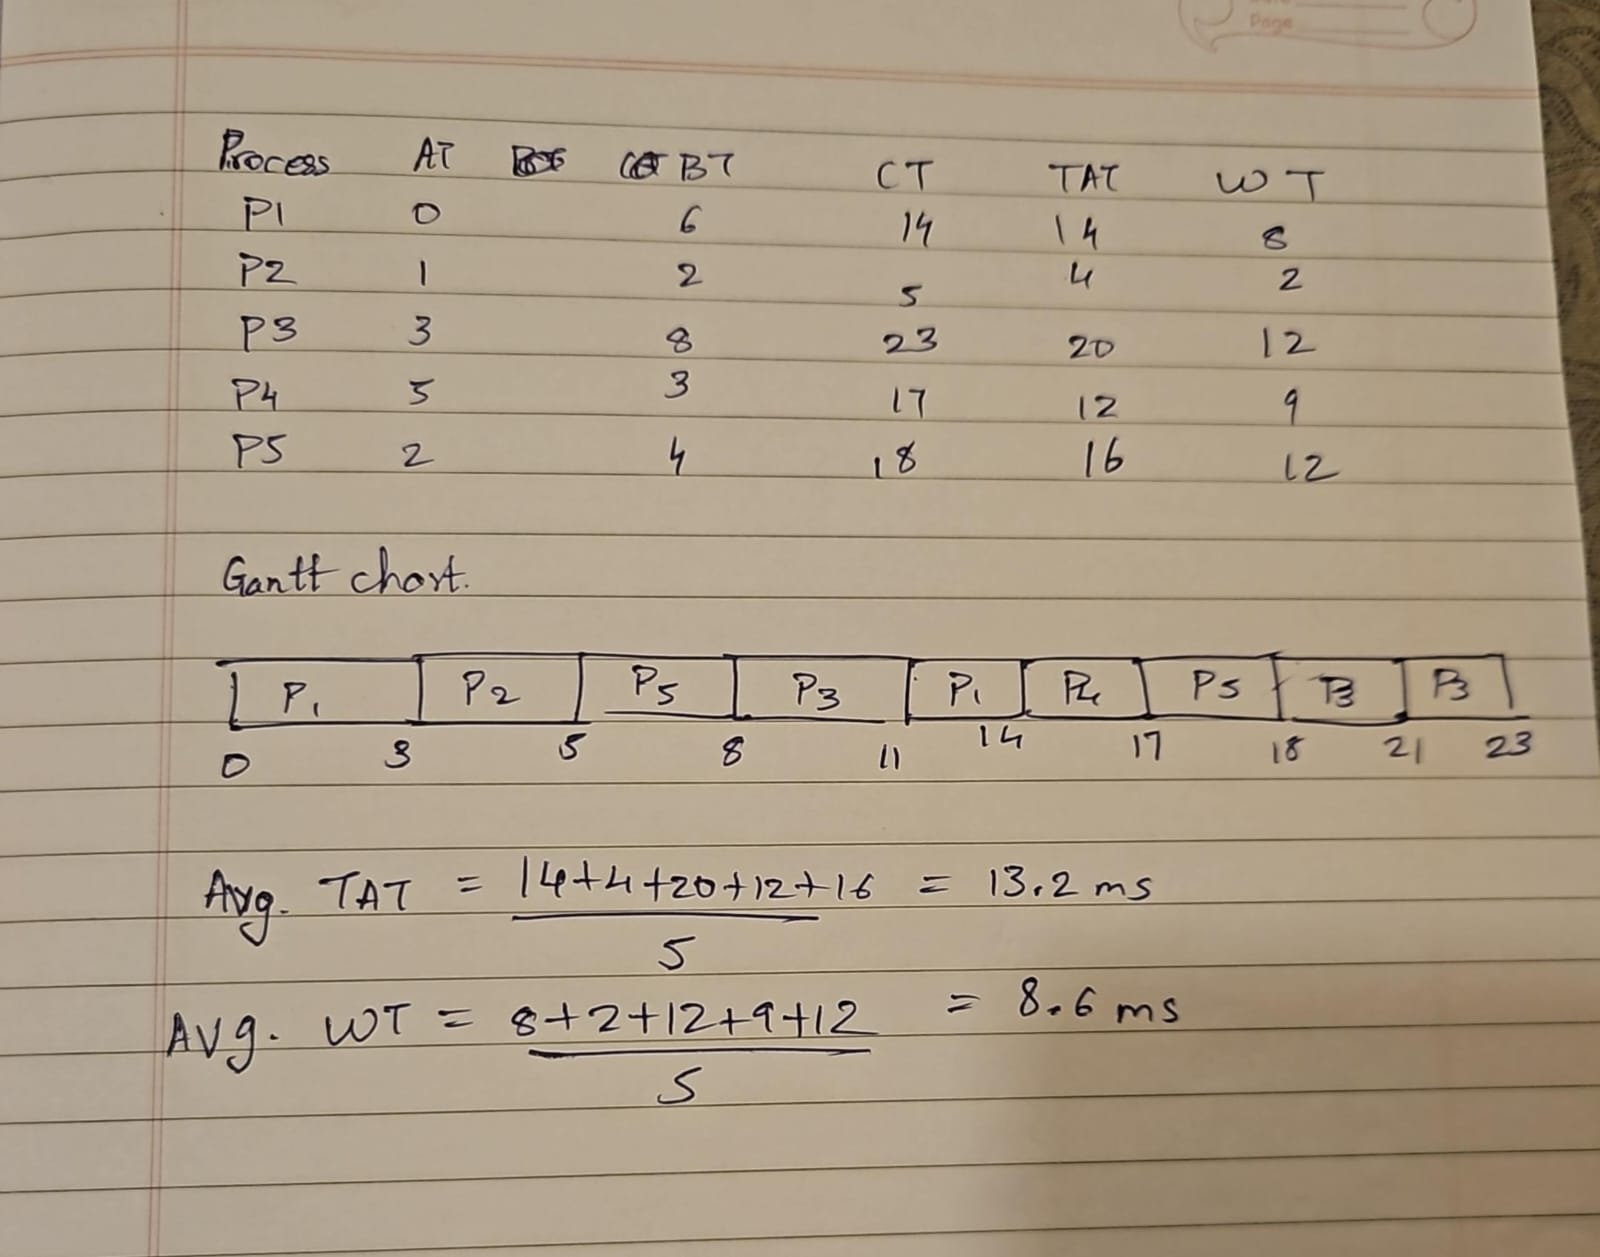 Page
Process AT BT CT TAT WT
P1 0 6 14 14 8
P2 1 2 5 4 2
P3 3 8 23 20 12
P4 5 3 17 12 9
P5 2 4 18 16 12
Gantt chart.
P1 P2 P5 P3 P1 P4 P5 P3 P3
0 3 5 8 11 14 17 18 21 23
Avg. TAT = 14+4+20+12+16 = 13.2 ms
5
Avg. WT = 8+2+12+9+12 = 8.6 ms
5